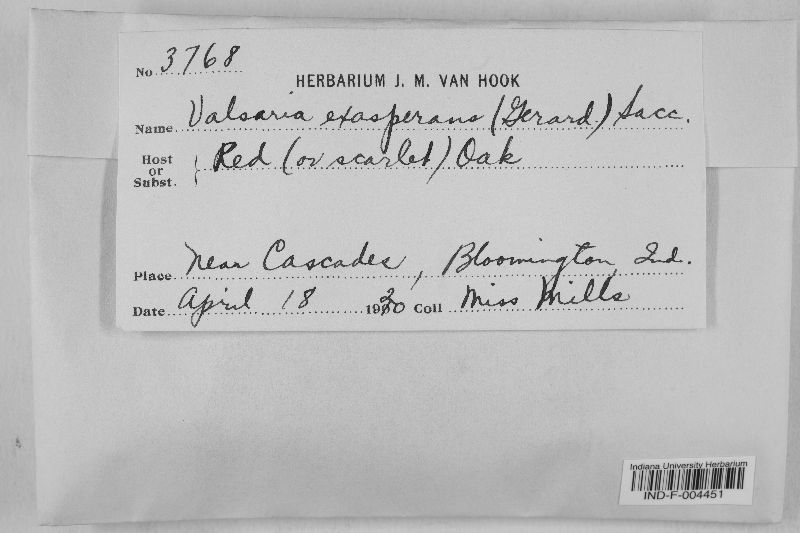 No 3768
HERBARIUM J. M. VAN HOOK
Name Valsaria exasperans (Gerard) Sacc.
Host or Subst. { Red (or scarlet) Oak
Place Near Cascades, Bloomington, Ind.
Date April 18 1920 Coll Miss Mills
Indiana University Herbarium
IND-F-004451